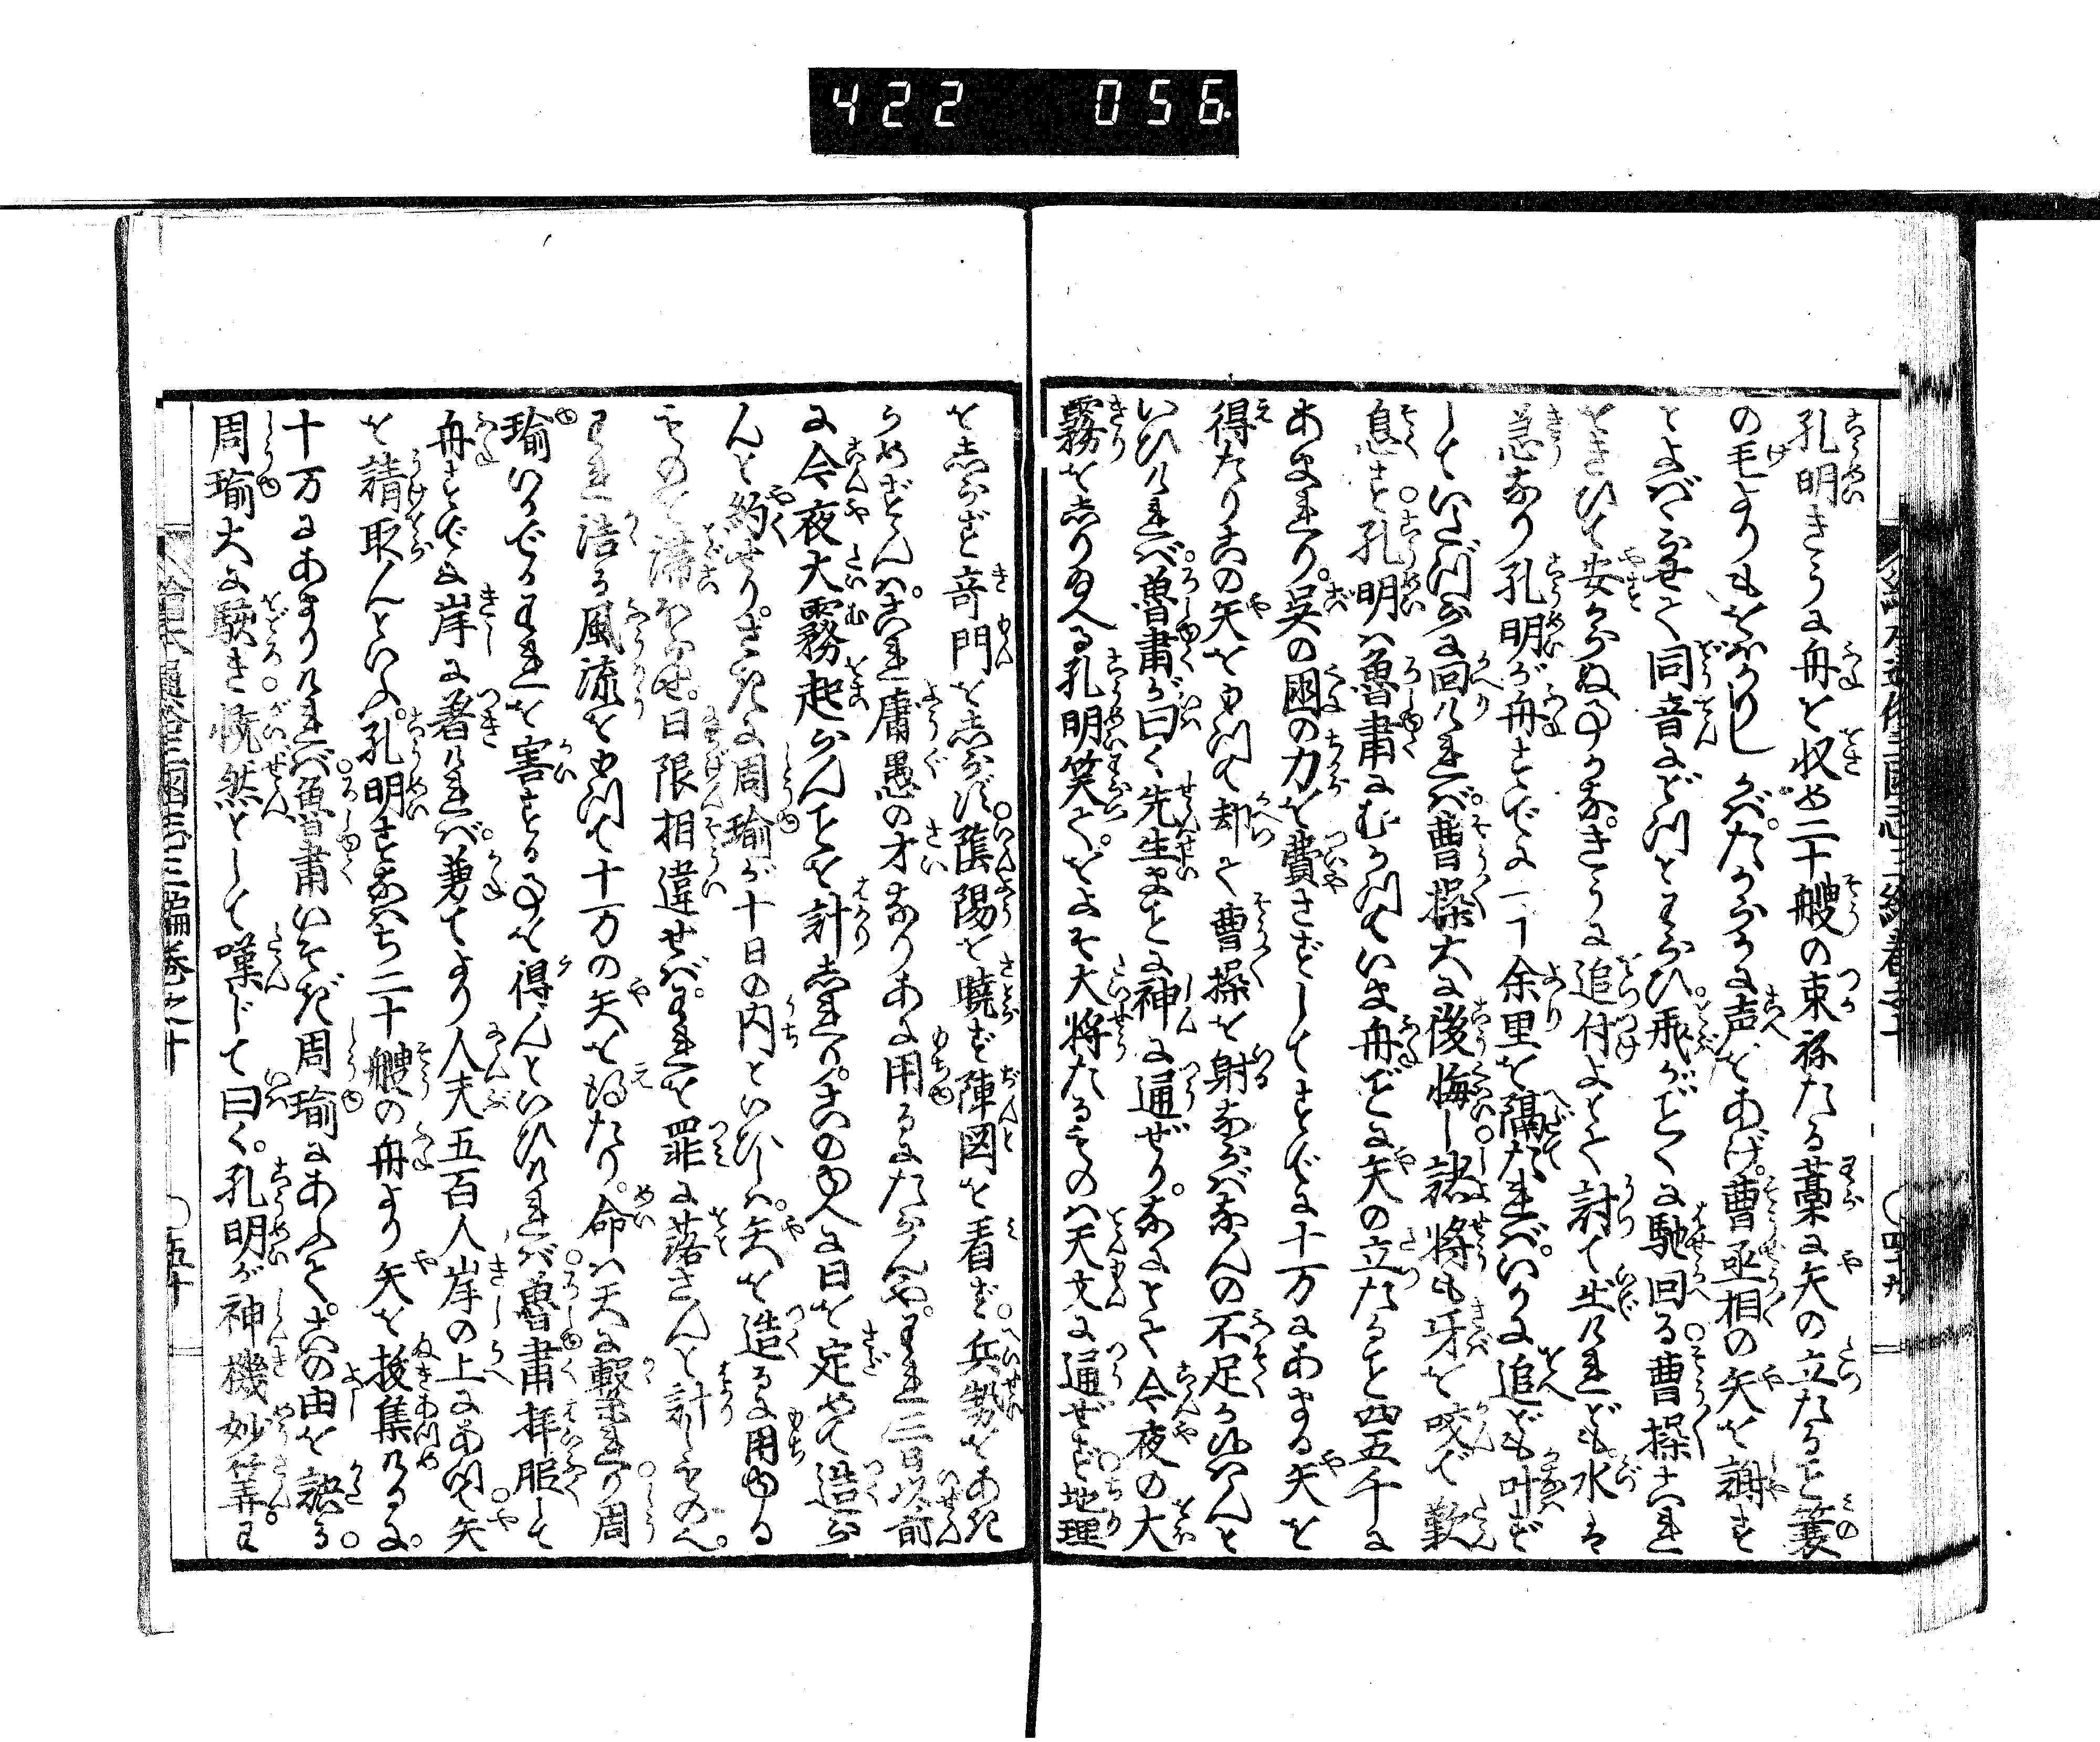 422 056
孔明きうに舟を収め二十艘の束ねたる藁に矢の立たると簑
の毛よりもをほかりしかバたからかに声をあげ曹丞相の矢を謝す
とよばゝせて同音にどつとわらひ飛がごとくに馳回る曹操これ
をきひて安からぬ事かなきうに追付よとて討て出けれども水は
急なり孔明が舟すでに二十余里を隔たれバいかに追ども叶ず
していたづらに回けれバ曹操大に後悔し諸将も牙を咬で歎
息す孔明ハ魯肅にむかつていま舟ごとに矢の立たると四五千に
あまれり呉の国の力を費さずしてすでに十万にあまる矢を
得たりこの矢をもつて却て曹操を射ならばなんの不足か候ハんと
いひけれバ魯肅が曰く先生まことに神に通ぜりなにとて今夜の大
霧をしり給へる孔明笑てをよそ大将たるものハ天文に通ぜず地理
をしらず奇門をしらず陰陽を暁ず陣図を看ず兵勢をあき
らめざらんハこれ庸愚の才なりあに用るにたらんやわれ三日以前
に今夜大霧起らんことを計しれりこのゆへに日を定めて造ら
んと約せりさきに周瑜が十日の内といひしハ矢を造るに用ゆる
ものを滞らせ日限相違せばわれを罪に落さんと計しものへ
われ浩る風流をもつて十万の矢を得たり命ハ天に繋れり周
瑜いかでかわれを害する事を得んといひけれバ魯肅拝服して
舟すでに岸に着けれバ兼てより人夫五百人岸の上にあつて矢
を請取んといふ孔明すなハち二十艘の舟より矢を抜集けるに
十万にあまりけれバ魯肅いそぎ周瑜にあふてこの由を語る
周瑜大に駭き慨然として嘆じて曰く孔明が神機妙算わ
五十